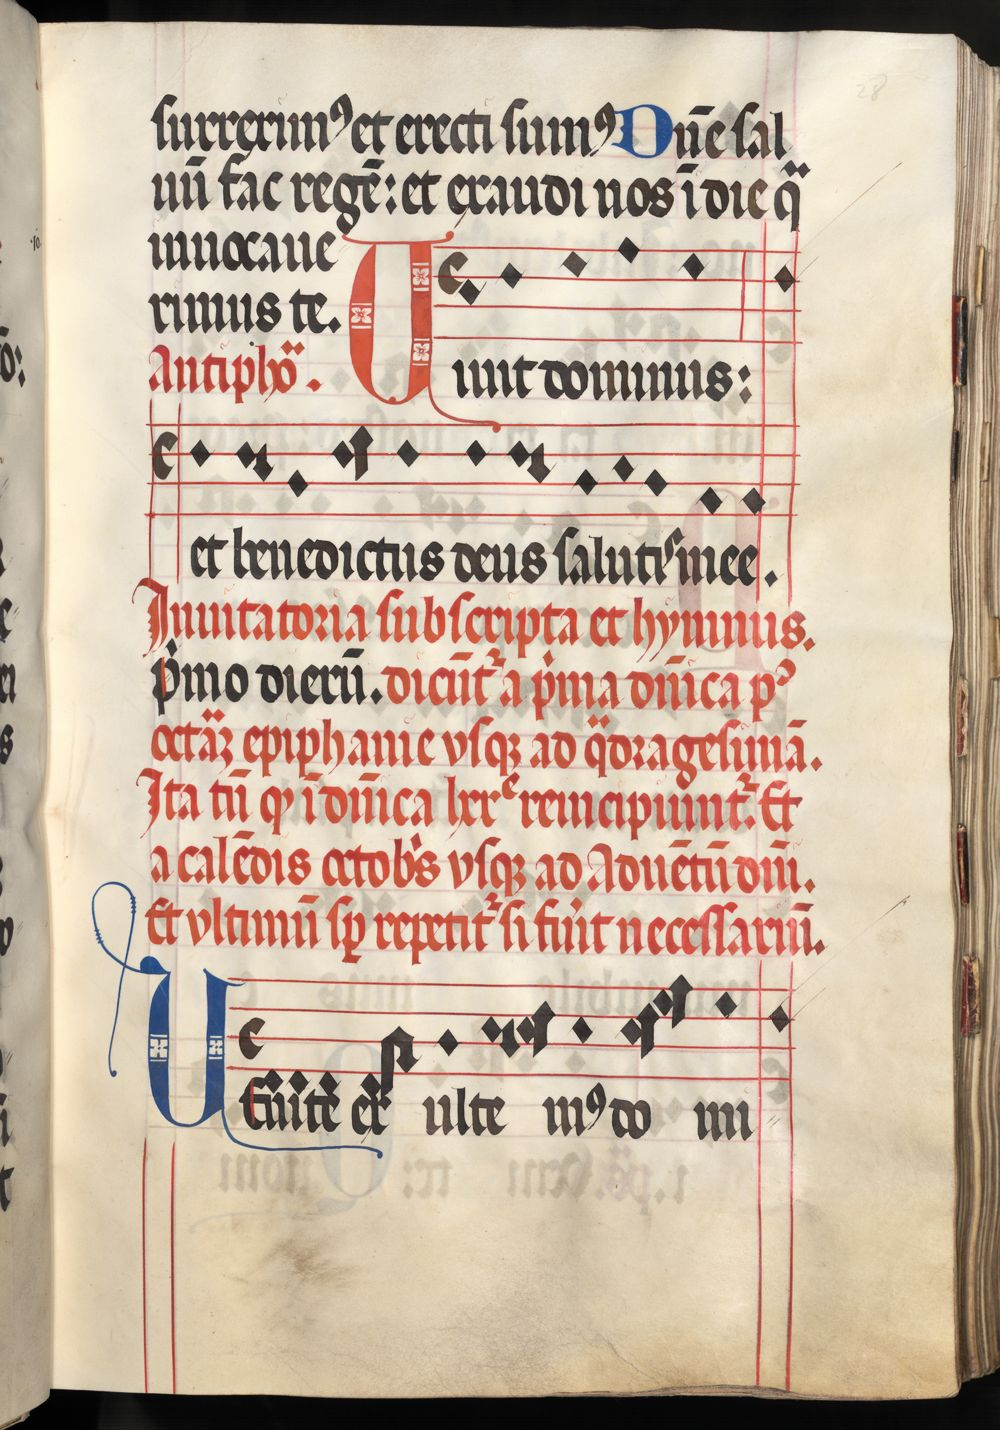 28
surreximꝰ et erecti sumꝰ Dn̄e sal
uū fac regē: et exaudi nos ī die qͣ
inuocaue
rimus te.
Antiphoͣ. Uiuit dominus:
et benedictus deus salutis mee.
Inuitatoria subscripta et hymnus.
pͥmo dierū. dicūt᷑ a pͥma dn̄ica pꝰ
octāꝝ epiphanie vsqꝫ ad qͣdragesimā.
Ita tn̄ ꝙ ī dn̄ica lxxᵉ reincipiunt᷑. Et
a calēdis octobr̄s vsqꝫ ad Aduētū dn̄i.
Et vltimū sp̄ repetit᷑ si fuīt necessariū.
Uenite ex ulte mꝰ do mi